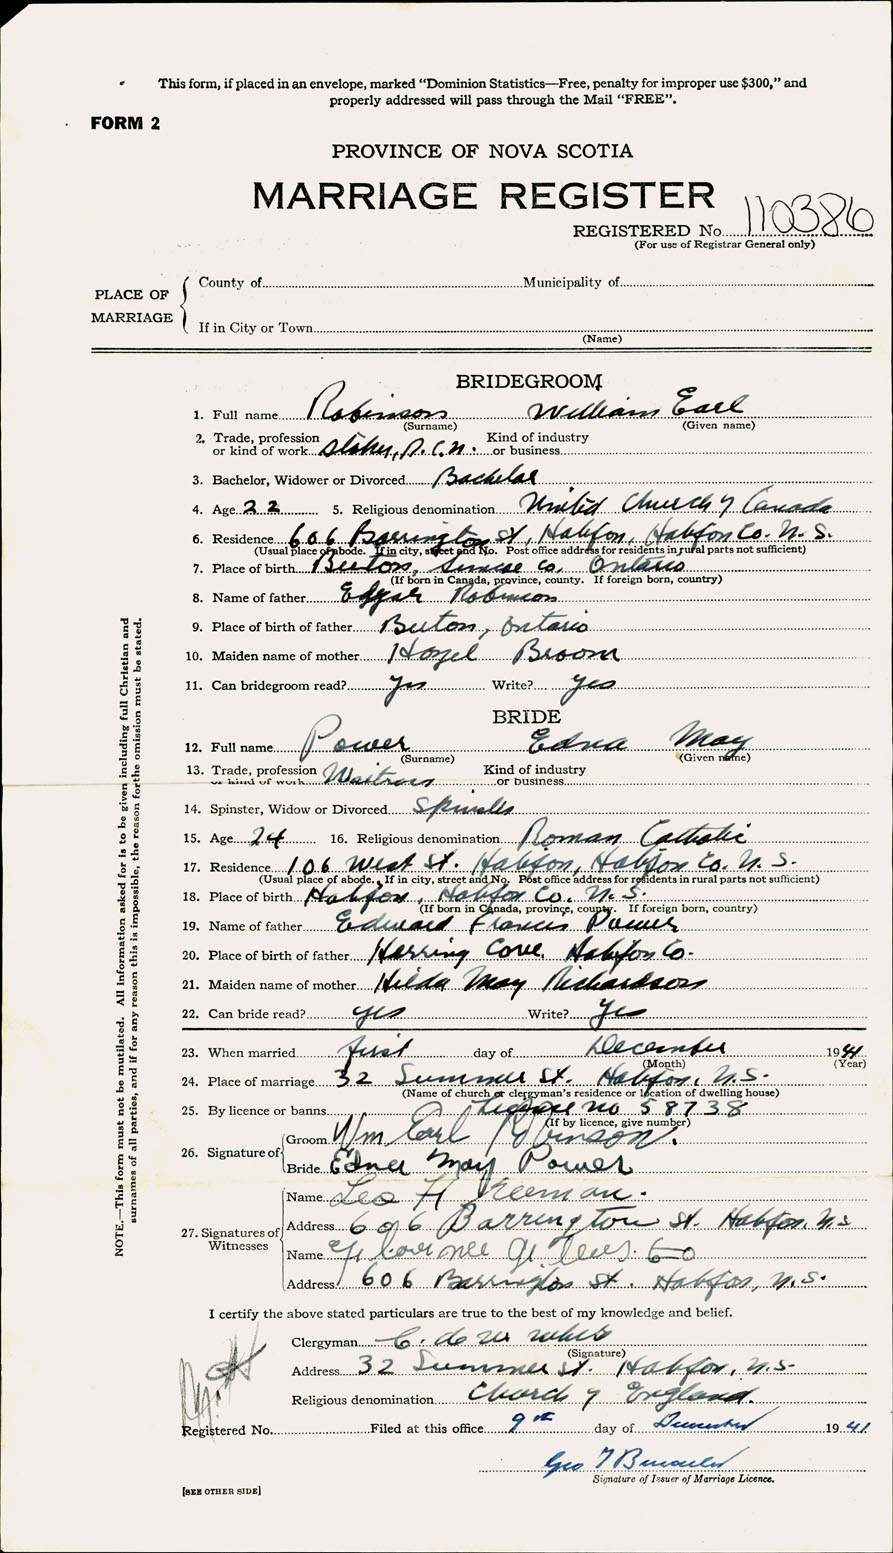 This form, if placed in an envelope, marked “Dominion Statistics—Free, penalty for improper use $300,” and
properly addressed will pass through the Mail “FREE”.
FORM 2
PROVINCE OF NOVA SCOTIA
MARRIAGE REGISTER
REGISTERED No. 110386
(For use of Registrar General only)
PLACE OF MARRIAGE
County of Municipality of
If in City or Town
(Name)
BRIDEGROOM
1. Full name Robinson William Earl
(Surname) (Given name)
2. Trade, profession or kind of work Stoker, R.C.N. Kind of industry or business
3. Bachelor, Widower or Divorced Bachelor
4. Age 22 5. Religious denomination United Church of Canada
6. Residence 606 Barrington St, Halifax, Halifax Co. N.S.
(Usual place of abode. If in city, street and No. Post office address for residents in rural parts not sufficient)
7. Place of birth Beeton, Simcoe Co. Ontario
(If born in Canada, province, county. If foreign born, country)
8. Name of father Edgar Robinson
9. Place of birth of father Beeton, Ontario
10. Maiden name of mother Hazel Broom
11. Can bridegroom read? Yes Write? Yes
BRIDE
12. Full name Power Edna May
(Surname) (Given name)
13. Trade, profession or kind of work Waitress Kind of industry or business
14. Spinster, Widow or Divorced Spinster
15. Age 24 16. Religious denomination Roman Catholic
17. Residence 106 West St. Halifax, Halifax Co. N.S.
(Usual place of abode. If in city, street and No. Post office address for residents in rural parts not sufficient)
18. Place of birth Halifax, Halifax Co. N.S.
(If born in Canada, province, county. If foreign born, country)
19. Name of father Edward Francis Power
20. Place of birth of father Herring Cove, Halifax Co.
21. Maiden name of mother Hilda May Richardson
22. Can bride read? Yes Write? Yes
23. When married first day of December 1941
(Month) (Year)
24. Place of marriage 32 Summer St. Halifax, N.S.
(Name of church or clergyman's residence or location of dwelling house)
25. By licence or banns License no 58738
(If by licence, give number)
26. Signature of
Groom Wm Earl Robinson.
Bride Edna May Power
27. Signatures of Witnesses
Name Leo H
Address 606 Barrington St. Halifax, N.S.
Name
Address 606 Barrington St. Halifax, N.S.
I certify the above stated particulars are true to the best of my knowledge and belief.
Clergyman C. de W. White
(Signature)
Address 32 Summer St. Halifax, N.S.
Religious denomination Church of England.
Registered No. Filed at this office 9th day of December 1941
Geo
Signature of Issuer of Marriage Licence.
[SEE OTHER SIDE]
NOTE.—This form must not be mutilated. All information asked for is to be given including full Christian and
surnames of all parties, and if for any reason this is impossible, the reason for the omission must be stated.